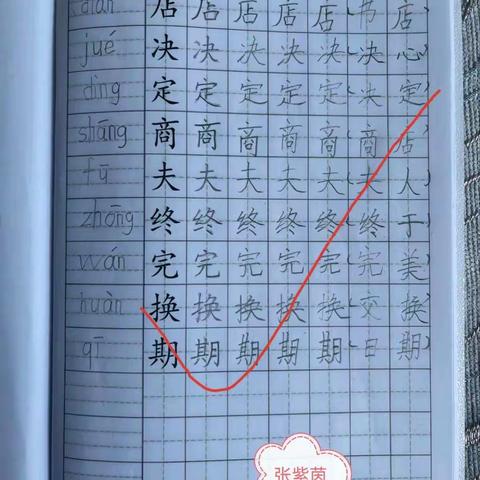 diàn 店 店 店 店 店 (书店)
jué 决 决 决 决 决 (决心)
dìng 定 定 定 定 定 (决定)
shāng 商 商 商 商 商 (商店)
fū 夫 夫 夫 夫 夫 (夫人)
zhōng 终 终 终 终 终 (终于)
wán 完 完 完 完 完 (完美)
huàn 换 换 换 换 换 (交换)
qī 期 期 期 期 期 (日期)
张紫茵